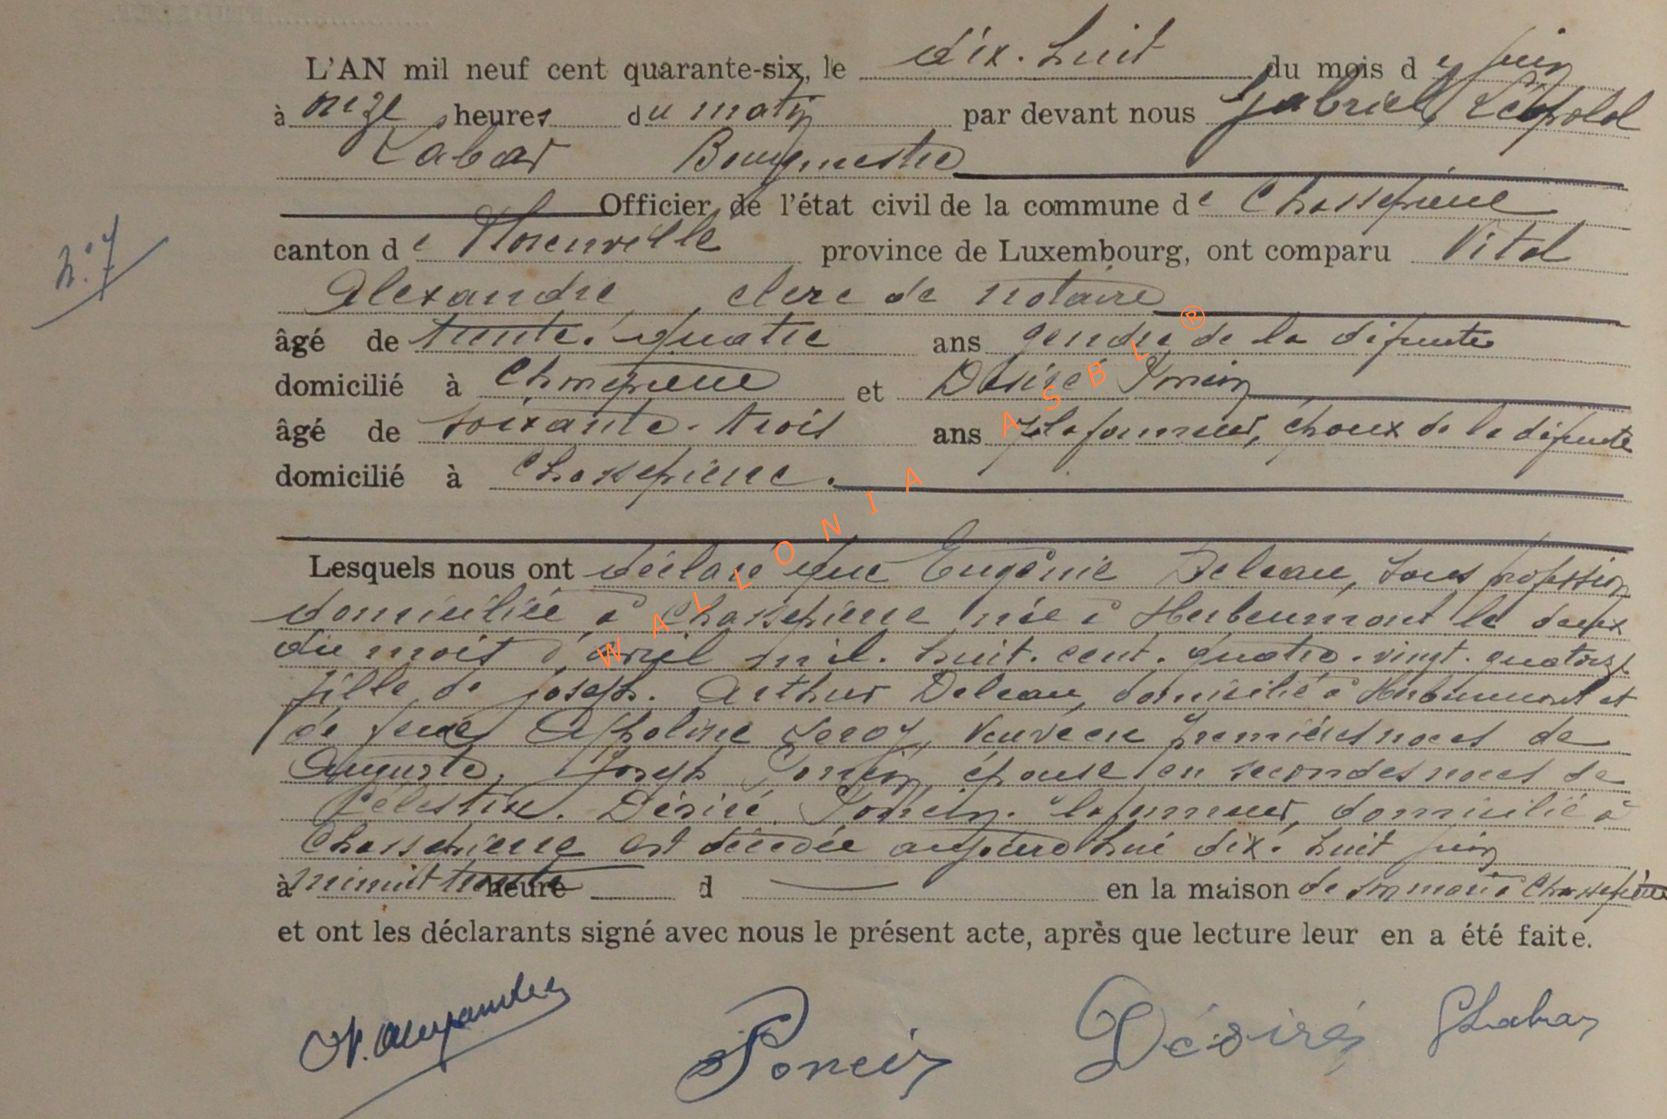 L'AN mil neuf cent quarante-six, le dix-huit du mois de juin
à onze heures du matin par devant nous Gabriel, Léopold
Labar Bourgmestre
Officier de l'état civil de la commune de Chassepierre
N° 7
canton de Florenville province de Luxembourg, ont comparu Vital
Alexandre, clerc de notaire
âgé de trente-quatre ans gendre de la défunte
domicilié à Chassepierre et Désiré Poncin
âgé de soixante-trois ans plafonneur, époux de la défunte
domicilié à Chassepierre.
Lesquels nous ont déclaré que Eugénie Deleau, sans profession
domiciliée à Chassepierre née à Herbeumont le deux
du mois d'avril mil-huit-cent-quatre-vingt-quatorze
fille de Joseph-Arthur Deleau, domicilié à Herbeumont et
de feue Apholine Leroy, veuve en premières noces de
Auguste, Joseph Poncin, épouse en secondes noces de
Célestin-Désiré Poncin-plafonneur, domicilié à
Chassepierre est décédée aujourd'hui dix-huit juin
à minuit trente heure d en la maison de son mari à Chassepierre
et ont les déclarants signé avec nous le présent acte, après que lecture leur en a été faite.
V. Alexandre Poncin Désiré GLabar
WALLONIA ASBL ®